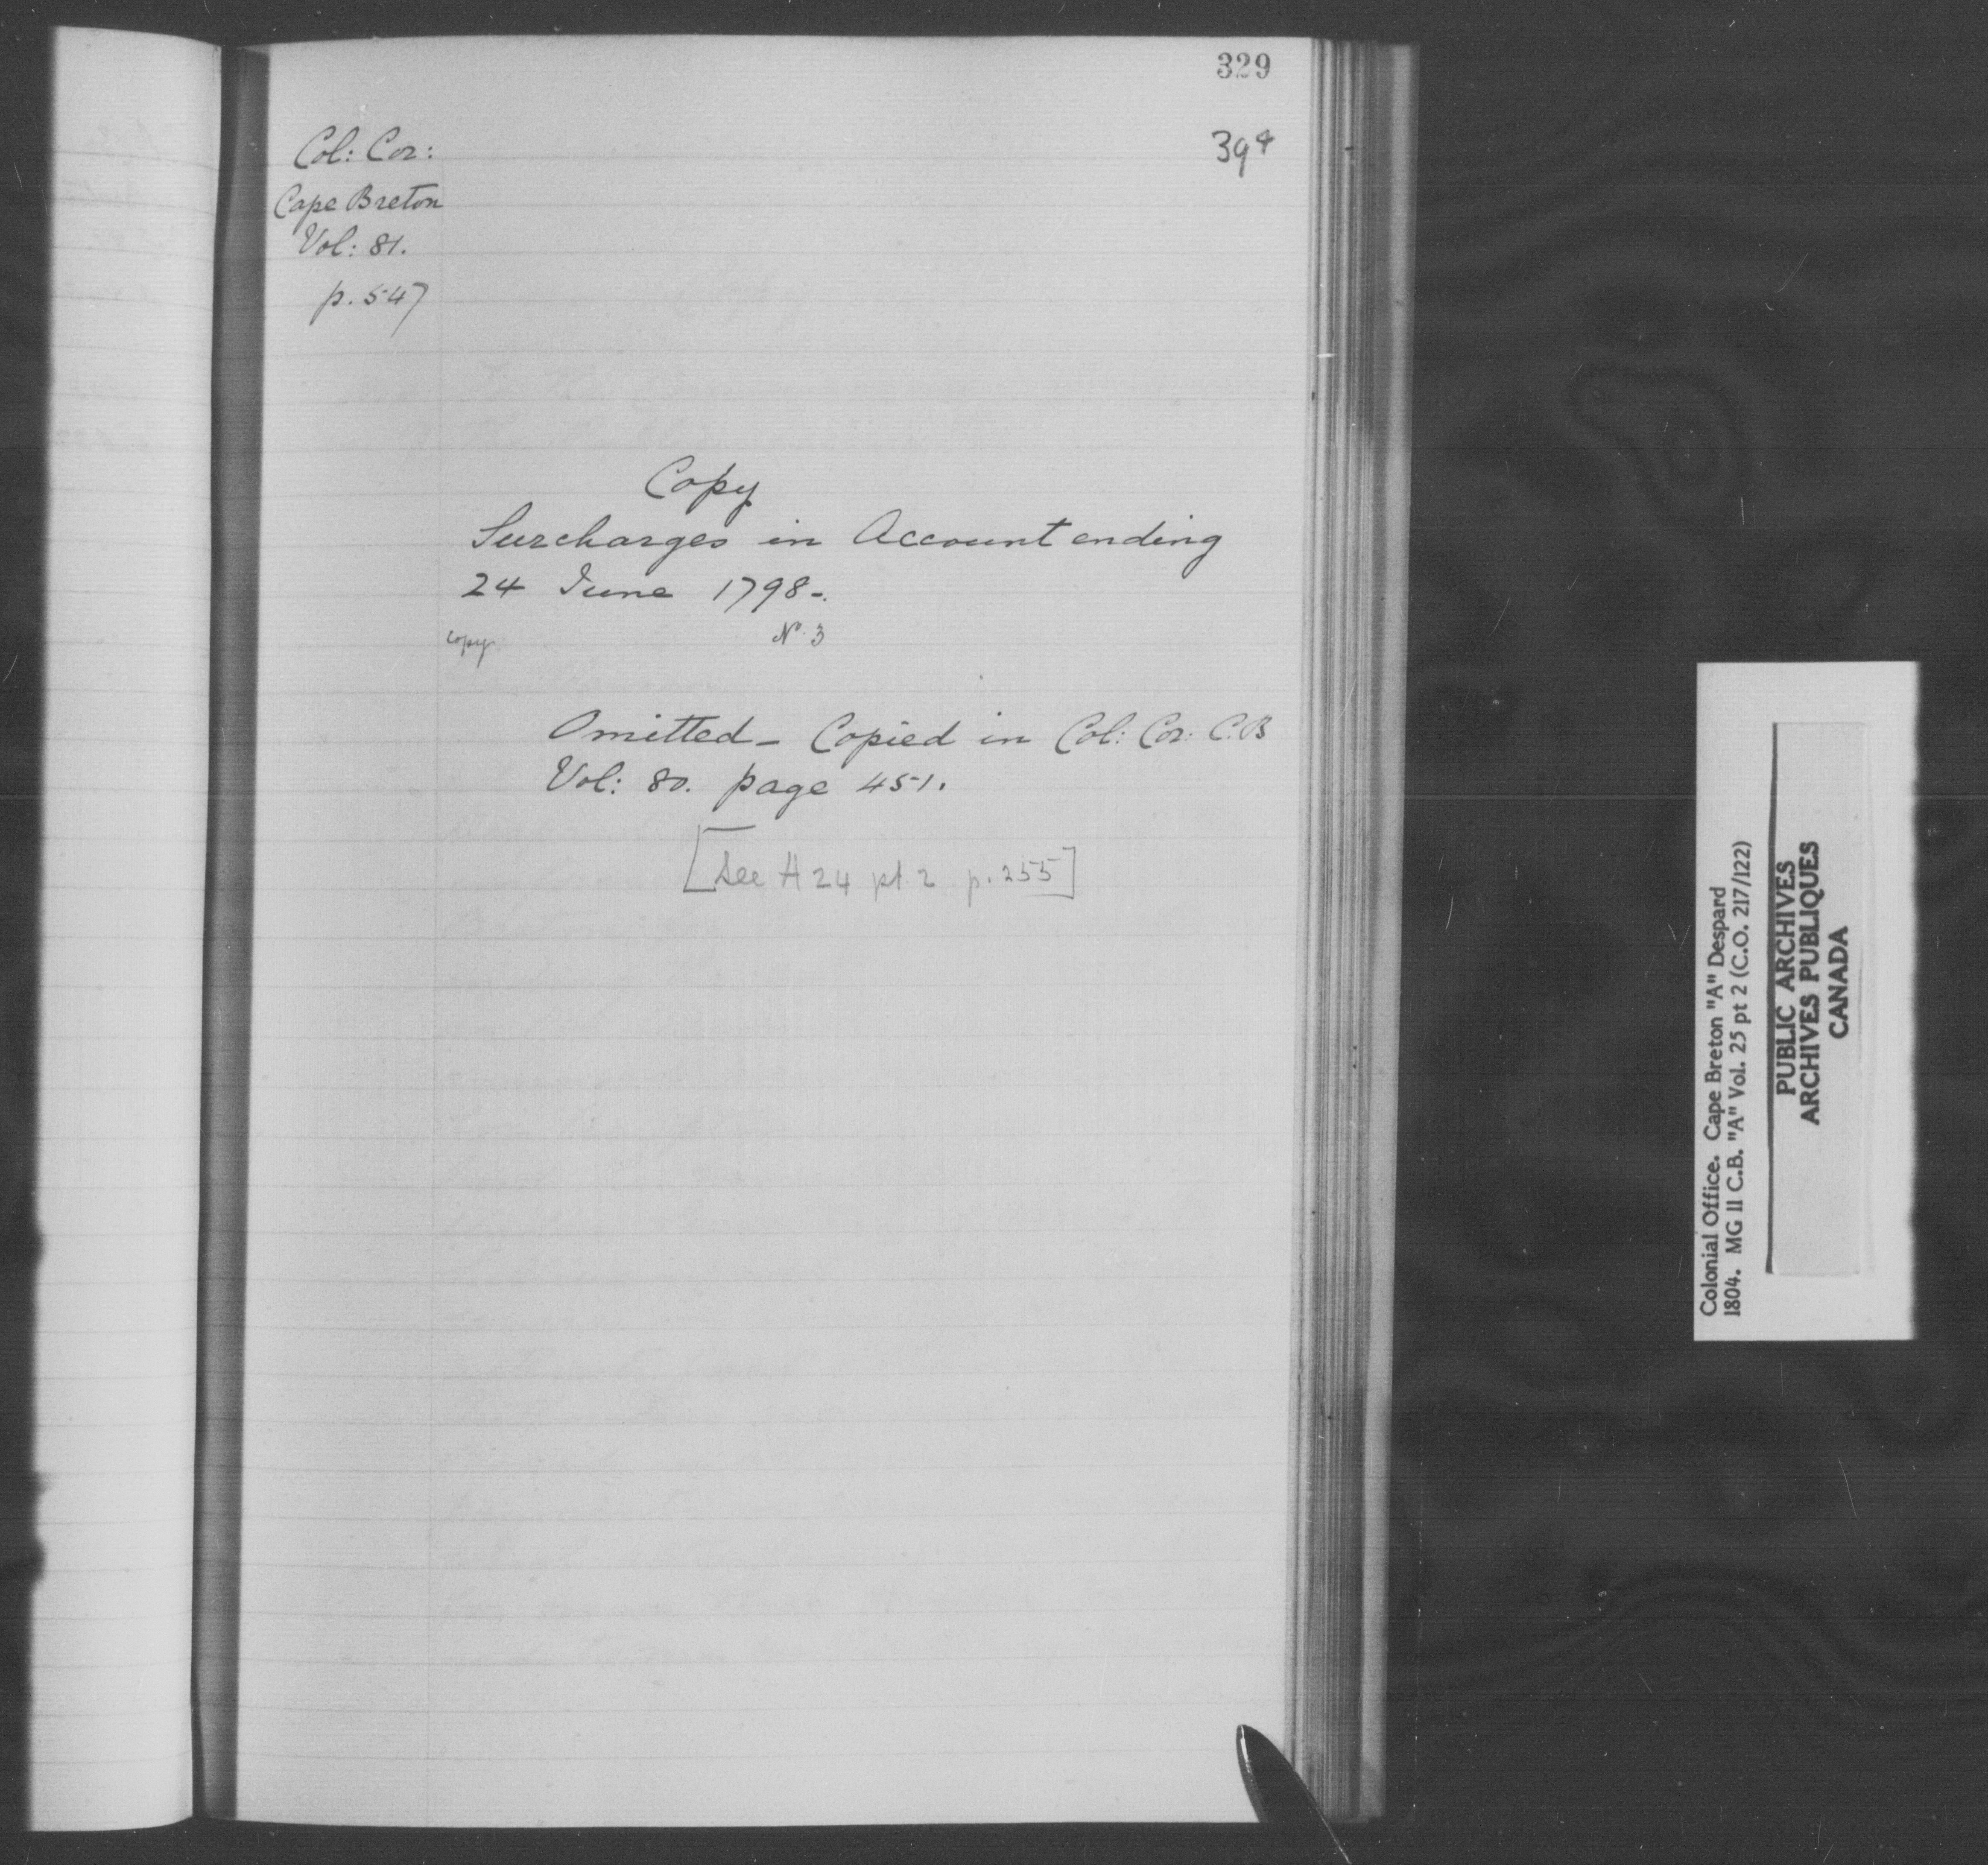 329
394
Col: Cor:
Cape Breton
Vol: 81.
p. 547
Copy
Surcharges in Account ending
24 June 1798-.
copy Nº 3
Omitted- Copied in Col: Cor: C.B
Vol: 80. page 451.
[See A 24 pt. 2 p. 255]
Colonial Office. Cape Breton "A" Despard
1804. MG 11 C.B. "A" Vol. 25 pt 2 (C.O. 217/122)
PUBLIC ARCHIVES
ARCHIVES PUBLIQUES
CANADA